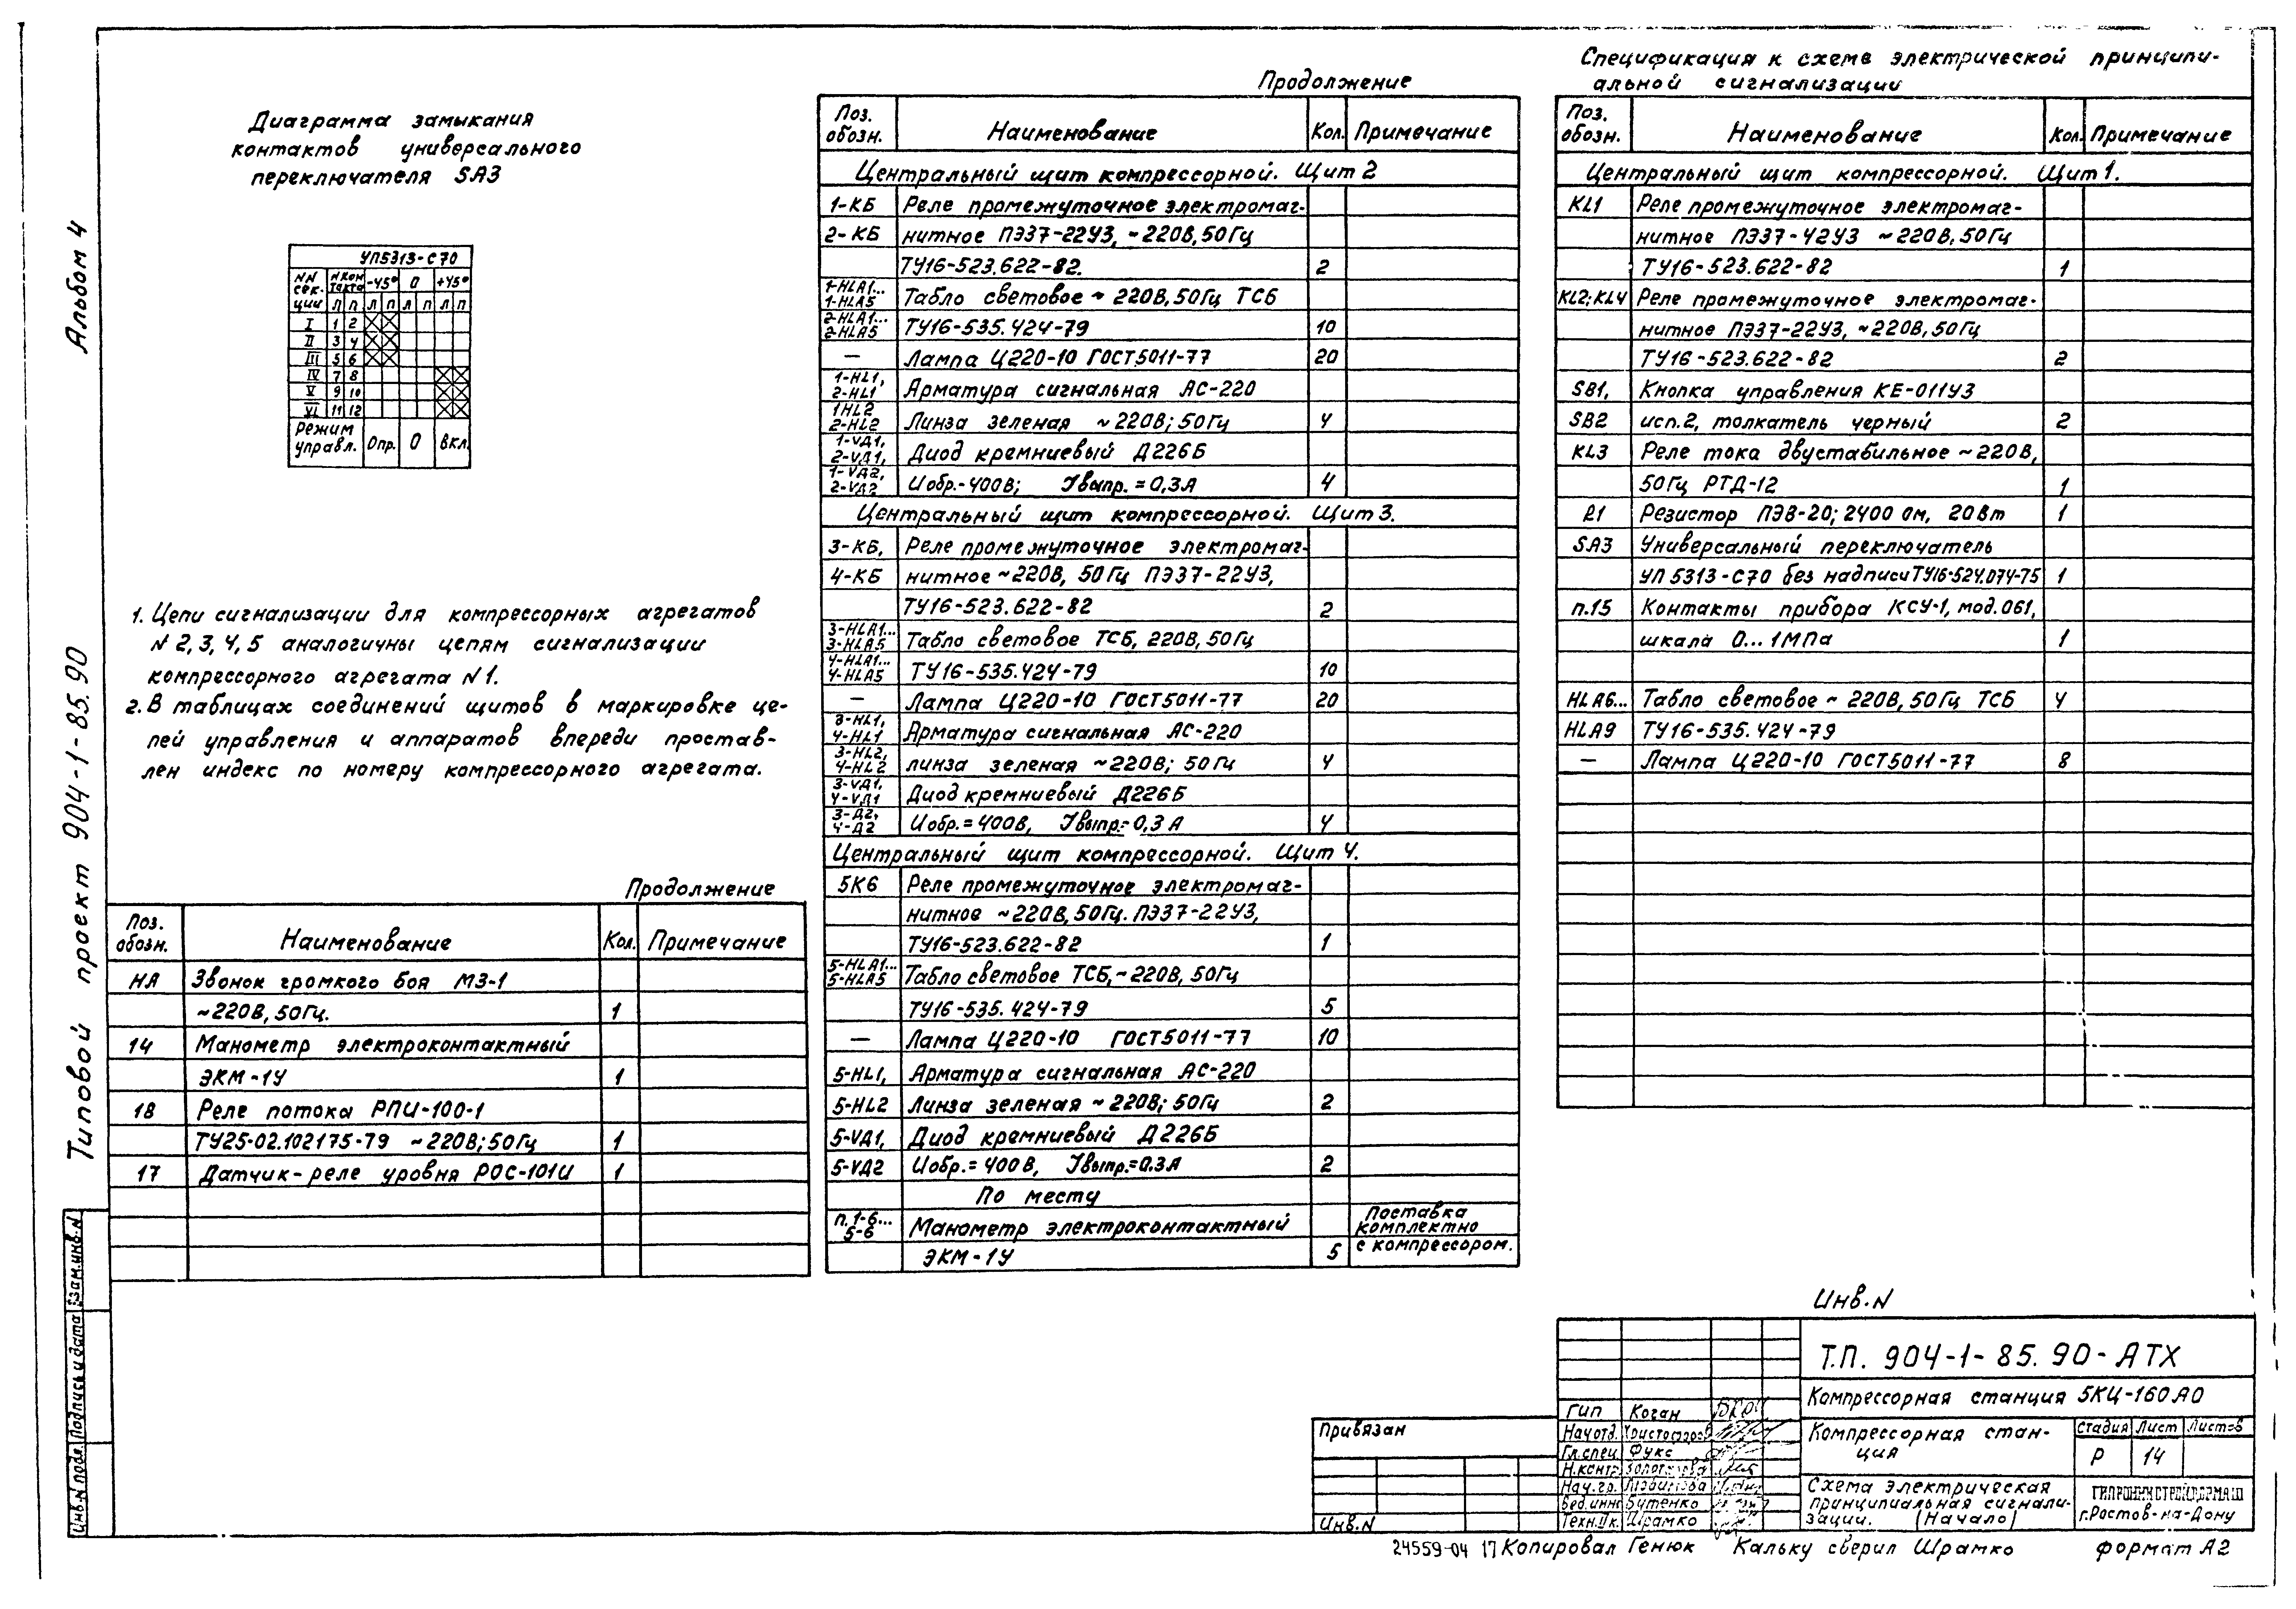 Альбом 4
Типовой проект 904-1-85.90
Диаграмма замыкания
контактов универсального
переключателя SA3
УП5313-С70
NN сек-ции | N контакта | -45° | 0 | +45°
Л П Л П Л П Л П
I 1 2
II 3 4
III 5 6
IV 7 8
V 9 10
VI 11 12
Режим управл. Опр. 0 Вкл.
1. Цепи сигнализации для компрессорных агрегатов
N 2, 3, 4, 5 аналогичны цепям сигнализации
компрессорного агрегата N1.
2. В таблицах соединений щитов в маркировке це-
пей управления и аппаратов впереди простав-
лен индекс по номеру компрессорного агрегата.
Продолжение
Поз. обозн. Наименование Кол. Примечание
НА Звонок громкого боя МЗ-1
~220В, 50Гц. 1
14 Манометр электроконтактный
ЭКМ-1У 1
18 Реле потока РПИ-100-1
ТУ25-02.102175-79 ~220В; 50Гц 1
17 Датчик-реле уровня РОС-101И 1
Продолжение
Поз. обозн. Наименование Кол. Примечание
Центральный щит компрессорной. Щит 2
1-КБ Реле промежуточное электромаг-
2-КБ нитное ПЭ37-22У3, ~220В, 50Гц
ТУ16-523.622-82. 2
1-HLA1... 1-HLA5 Табло световое ~ 220В, 50Гц ТСБ
2-HLA1... 2-HLA5 ТУ16-535.424-79 10
— Лампа Ц220-10 ГОСТ5011-77 20
1-HL1, 2-HL1 Арматура сигнальная АС-220
1HL2 2-HL2 Линза зеленая ~220В; 50Гц 4
1-VД1, 2-VД1, Диод кремниевый Д226Б
1-VД2, 2-VД2 Uобр.-400В; Iвыпр.=0,3А 4
Центральный щит компрессорной. Щит 3.
3-КБ, Реле промежуточное электромаг-
4-КБ нитное ~220В, 50Гц ПЭ37-22У3,
ТУ16-523.622-82 2
3-HLA1... 3-HLA5 Табло световое ТСБ, 220В, 50Гц
4-HLA1... 4-HLA5 ТУ16-535.424-79 10
— Лампа Ц220-10 ГОСТ5011-77 20
3-HL1, 4-HL1 Арматура сигнальная АС-220
3-HL2, 4-HL2 линза зеленая ~220В; 50Гц 4
3-VД1, 4-VД1 Диод кремниевый Д226Б
3-Д2, 4-Д2 Uобр.=400В, Iвыпр.-0,3А 4
Центральный щит компрессорной. Щит 4.
5К6 Реле промежуточное электромаг-
нитное ~220В, 50Гц. ПЭ37-22У3,
ТУ16-523.622-82 1
5-HLA1... 5-HLA5 Табло световое ТСБ, ~220В, 50Гц
ТУ16-535.424-79 5
— Лампа Ц220-10 ГОСТ5011-77 10
5-HL1, Арматура сигнальная АС-220
5-HL2 Линза зеленая ~220В; 50Гц 2
5-VД1, Диод кремниевый Д226Б
5-VД2 Uобр.=400В, Iвыпр.=0.3А 2
По месту
п. 1-6... 5-6 Манометр электроконтактный Поставка комплектно
ЭКМ-1У 5 с компрессором.
Спецификация к схеме электрической принципи-
альной сигнализации
Поз. обозн. Наименование Кол. Примечание
Центральный щит компрессорной. Щит 1.
KL1 Реле промежуточное электромаг-
нитное ПЭ37-42У3 ~220В, 50Гц
ТУ16-523.622-82 1
KL2; KL4 Реле промежуточное электромаг-
нитное ПЭ37-22У3, ~220В, 50Гц
ТУ16-523.622-82 2
SB1, Кнопка управления КЕ-011У3
SB2 исп.2, толкатель черный 2
KL3 Реле тока двустабильное ~220В,
50Гц РТД-12 1
R1 Резистор ПЭВ-20; 2400 ом, 20Вт 1
SA3 Универсальный переключатель
УП 5313-С70 без надписи ТУ16-524.074-75 1
п.15 Контакты прибора КСУ-1, мод. 061,
шкала 0...1МПа 1
HLA6... Табло световое ~ 220В, 50Гц ТСБ 4
HLA9 ТУ16-535.424-79
— Лампа Ц220-10 ГОСТ5011-77 8
Инв.N
Т.П. 904-1-85.90-АТХ
Компрессорная станция 5КЦ-160А0
Компрессорная стан-
ция
Стадия Лист Листов
Р 14
Схема электрическая
принципиальная сигнали-
зации. (Начало)
ГИПРОНИИСТРОЙДОРМАШ
г.Ростов-на-Дону
ГИП Коган
Нач.отд.
Гл.спец. Фукс
Н.контр.
Нач.гр.
Вед.инж. Бутенко
Техн.IIк. Шрамко
Привязан
Инв.N
Инв.N подл. Подпись и дата Взам.инв.N
24559-04 17 Копировал Генюк Кальку сверил Шрамко формат А2